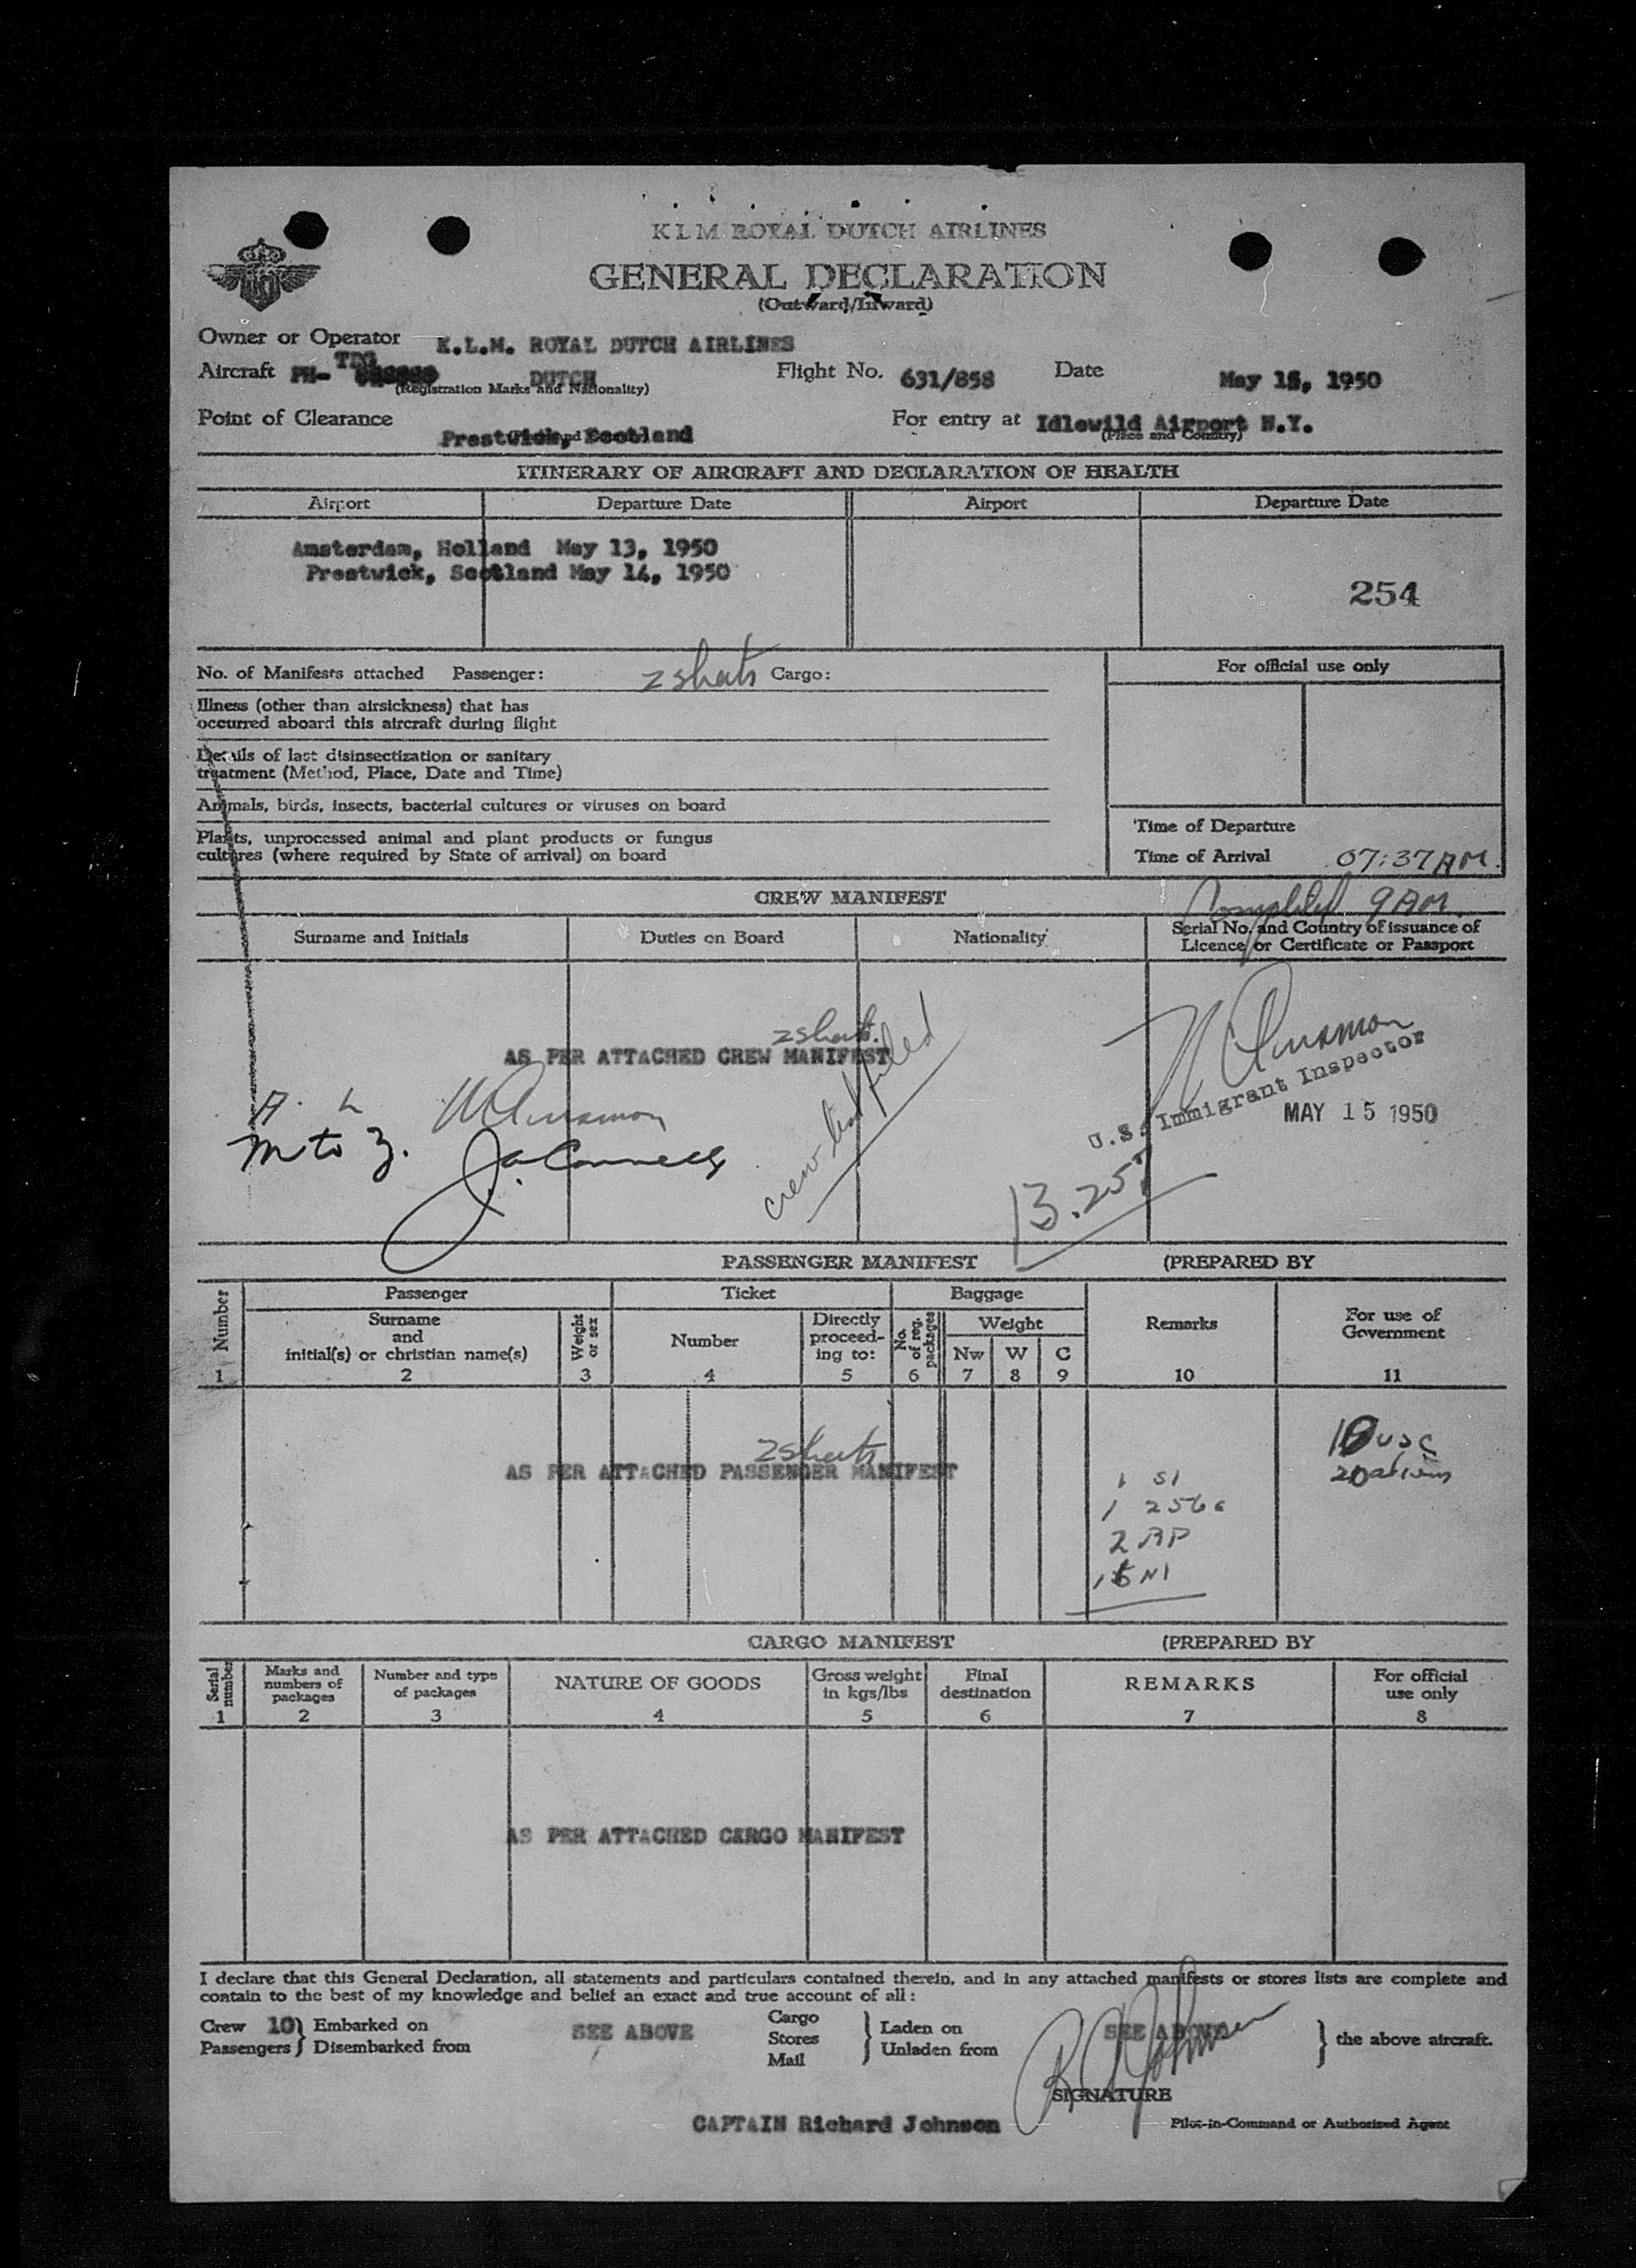 KLM ROYAL DUTCH AIRLINES
GENERAL DECLARATION
(Outward/Inward)
Owner or Operator K.L.M. ROYAL DUTCH AIRLINES
Aircraft PH- TDG DUTCH Flight No. 631/858 Date May 15, 1950
(Registration Marks and Nationality)
Point of Clearance Prestwick, Scotland For entry at Idlewild Airport N.Y.
(Place and Country)
ITINERARY OF AIRCRAFT AND DECLARATION OF HEALTH
Airport Departure Date Airport Departure Date
Amsterdam, Holland May 13, 1950
Prestwick, Scotland May 14, 1950
254
No. of Manifests attached Passenger: 2 sheets Cargo:
For official use only
Illness (other than airsickness) that has
occurred aboard this aircraft during flight
Details of last disinsectization or sanitary
treatment (Method, Place, Date and Time)
Animals, birds, insects, bacterial cultures or viruses on board
Plants, unprocessed animal and plant products or fungus
cultures (where required by State of arrival) on board
Time of Departure
Time of Arrival 07:37 AM.
Completed 9 AM.
CREW MANIFEST
Surname and Initials Duties on Board Nationality Serial No. and Country of issuance of
Licence or Certificate or Passport
2 sheets.
AS PER ATTACHED CREW MANIFEST
crew list filed
U.S. Immigrant Inspector
MAY 15 1950
A. L
M to Z.
13.257
PASSENGER MANIFEST (PREPARED BY
Number Passenger Ticket Baggage Remarks For use of
Government
Surname
and
initial(s) or christian name(s)
Weight or sex
Number
Directly
proceed-
ing to:
No. of reg. packages
Weight
Nw W C
1 2 3 4 5 6 7 8 9 10 11
2 sheets
AS PER ATTACHED PASSENGER MANIFEST
USC
20 aliens
1 SI
1 256a
2 RP
15 NI
CARGO MANIFEST (PREPARED BY
Serial number
Marks and
numbers of
packages
Number and type
of packages
NATURE OF GOODS
Gross weight
in kgs/lbs
Final
destination
REMARKS
For official
use only
1 2 3 4 5 6 7 8
AS PER ATTACHED CARGO MANIFEST
I declare that this General Declaration, all statements and particulars contained therein, and in any attached manifests or stores lists are complete and
contain to the best of my knowledge and belief an exact and true account of all:
Crew 10 } Embarked on
Passengers } Disembarked from
SEE ABOVE
Cargo
Stores
Mail
} Laden on
Unladen from
SEE ABOVE
} the above aircraft.
R Johnson
SIGNATURE
CAPTAIN Richard Johnson
Pilot-in-Command or Authorized Agent